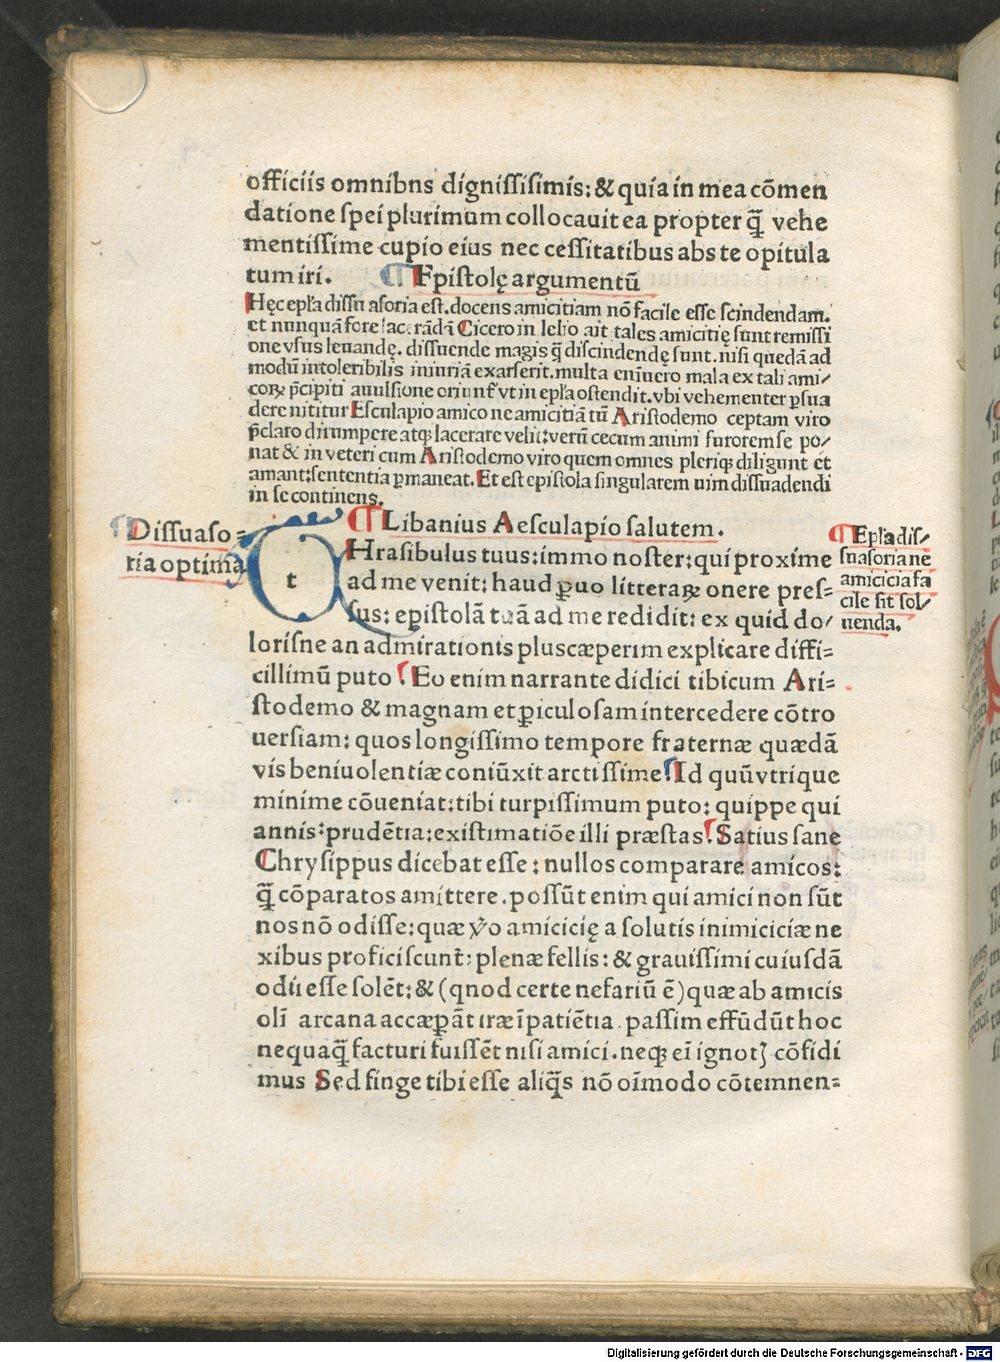 officiis omnibns dígnissisimis: & quía in mea cōmen
datione spei plurimum collocauit ea propter q̄ vehe
mentissime cupio eius nec cessitatibus abs te opitula
tum iri. ¶ Epistolę argumentū
Hęc epl̄a dissuasoria est. docens amicitiam nō facile esse scindendam.
et nunquā fore Cicero in lelio ait tales amicitię sunt remissi
one vsus leuandę. dissuende magis q̄ discindendę sunt. nisi quedā ad
modū intoleribilis iniuriā exarserit. multa enīuero mala ex tali ami⸗
coꝝ p̄cipiti auulsione oriunt̄ vt in epl̄a ostendit. vbi vehementer ꝑsua
dere nititur Esculapio amico ne amicitiā tū Aristodemo ceptam viro
p̄claro dirumpere atqꝫ lacerare velit: verū cecum animi furorem se po⸗
nat & in veteri cum Aristodemo viro quem omnes pleriqꝫ diligunt et
amant: sententia ꝑmaneat. Et est epistola singularem uim dissuadendi
in se continens.
¶ Libanius Aesculapio salutem.
¶ Dissuaso⸗
ria optima
tHrasibulus tuus: immo noster: qui proxime
ad me venit: haud ꝑuo litteraꝝ onere pres⸗
sus: epistolā tuā ad me redidit: ex quid do⸗
¶ Epl̄a dis⸗
suasoria ne
amicicia fa
cile sit sol⸗
uenda.
lorisne an admirationis pluscæperim explicare diffi⸗
cillimū puto ¶ Eo enim narrante didici tibicum Ari⸗
stodemo & magnam et ꝑiculosam intercedere cōtro
uersiam: quos longissimo tempore fraternæ quædā
vis beniuolentiæ coniūxit arctissime ¶ Id quū vtrique
minime cōueniat: tibi turpissimum puto: quippe qui
annis: prudētia: existimatiōe illi præstas. ¶ Satius sane
Chrysippus dicebat esse: nullos comparare amicos:
q̄ cōparatos amittere. possūt enim qui amici non sūt
nos nō odisse: quæ ỽo amicicię a solutis inimiciciæ ne
xibus proficiscunt̄: plenæ fellis: & grauissimi cuiusdā
odii esse solēt: & (qnod certe nefariū ē) quæ ab amicis
olī arcana accæꝑāt iræ īpatiētia. passim effūdūt hoc
nequaq̄ facturi fuissēt nisi amici. neqꝫ eī ignotꝭ cōfidi
mus Sed finge tibi esse aliq̄s nō oīmodo cōtemnen⸗
Digitalisierung gefördert durch die Deutsche Forschungsgemeinschaft - DFG